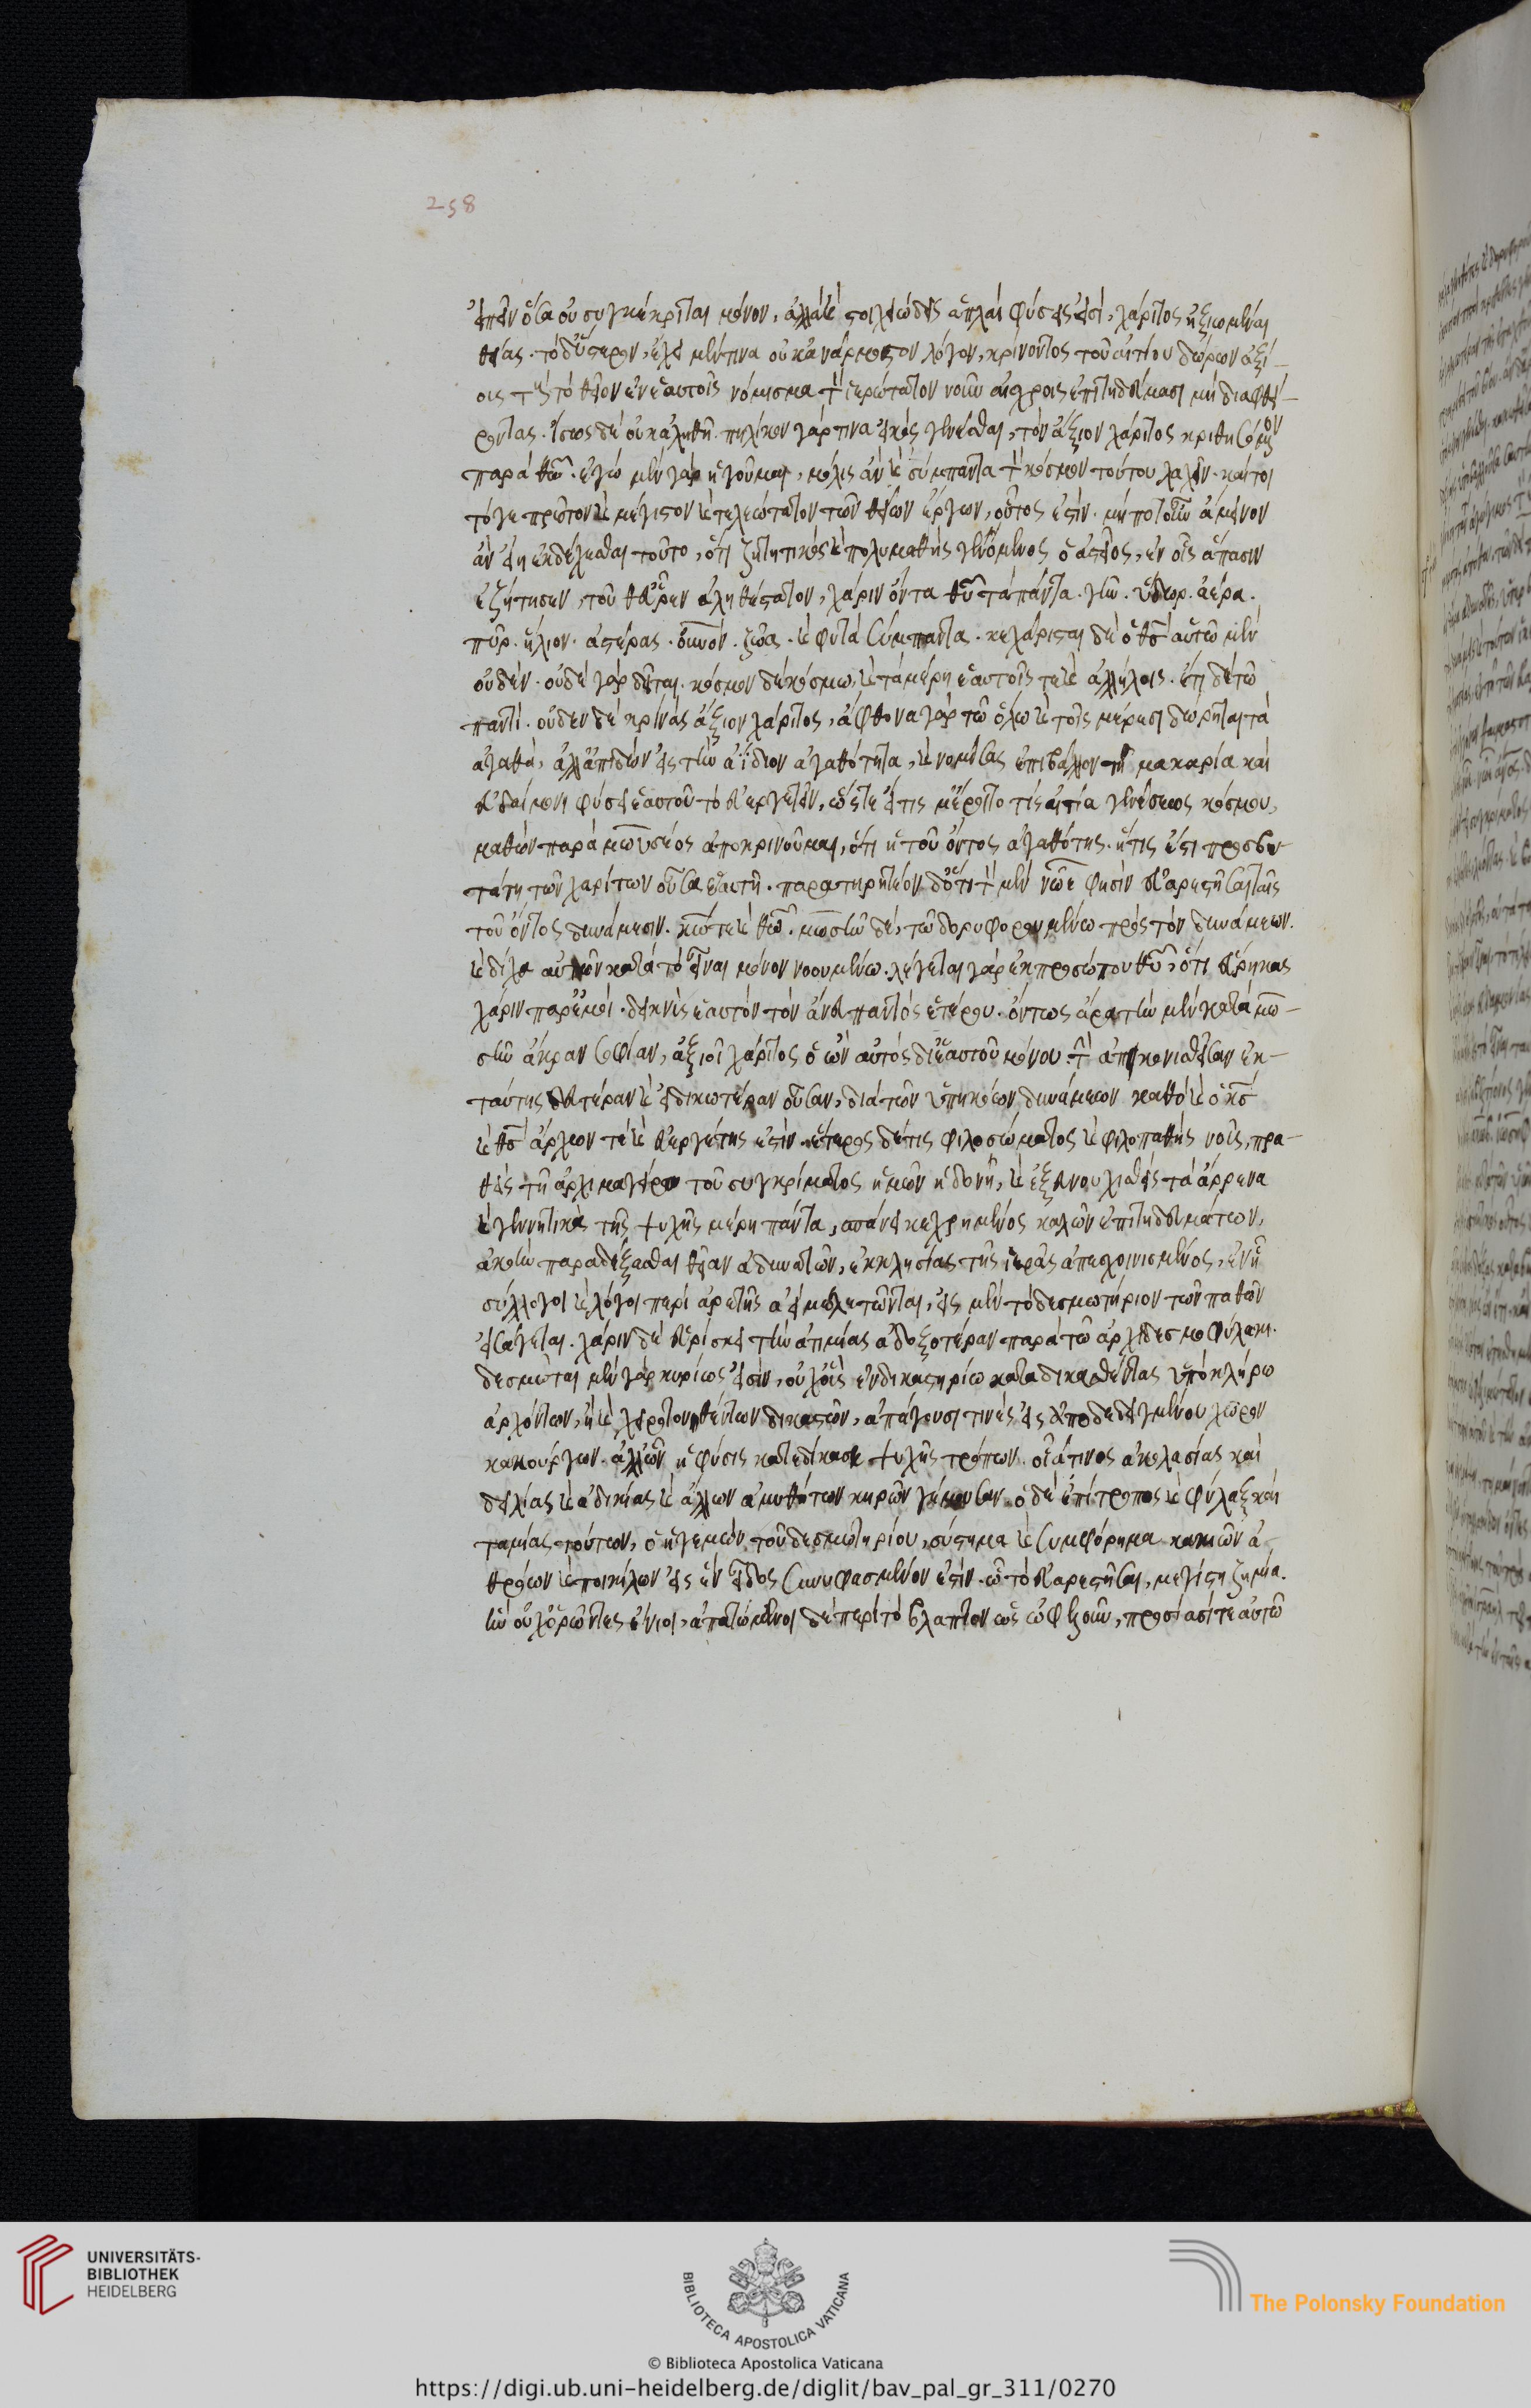 258
εἰπεῖν ὅσα οὐ συγκέκριται μόνον, ἀλλὰ καὶ στοιχειώδεις ἁπλαῖ φύσεις εἰσί, χάριτος ἠξιωμέναι
θείας. τὸ δεύτερον, ἔχει μέν τινα οὐκ ἀνάρμοστον λόγον, κρίνοντος τοῦ αἰτίου δώρων ἀξί-
οις τοὺς τὸ θεῖον ἐν ἑαυτοῖς νόμισμα τὸν ἱερώτατον νοῦν αἰσχροῖς ἐπιτηδεύμασι μὴ διαφθεί-
ροντας. ἴσως δὲ οὐκ ἀληθῆ. πηλίκον γάρ τινα εἰκὸς γενέσθαι, τὸν ἄξιον χάριτος κριθησόμενον
παρὰ θεῶ. ἐγὼ μὲν γὰρ ἡγοῦμαι, μόλις ἂν καὶ σύμπαντα τὸν κόσμον τούτου λαχεῖν. καίτοι
τό γε πρῶτον καὶ μέγιστον καὶ τελεώτατον τῶν θείων ἔργων, οὗτός ἐστιν. μή ποτ' οὖν ἄμεινον
ἂν εἴη ἐκδέχεσθαι τοῦτο, ὅτι ζητητικὸς καὶ πολυμαθὴς γενόμενος ὁ ἀστεῖος, ἐν οἷς ἅπασιν
ἐζήτησεν, τοῦθ' εὗρεν ἀληθέστατον, χάριν ὄντα θεοῦ τὰ πάντα. γῆν. ὕδωρ. ἀέρα.
πῦρ. ἥλιον. ἀστέρας. οὐνόν. ζῶα. καὶ φυτὰ σύμπαντα. κεχάρισται δὲ ὁ θς αὑτῶ μὲν
οὐδέν. οὐδὲ γὰρ δεῖται. κόσμον δὲ κόσμω, καὶ τὰ μέρη ἑαυτοῖς τε καὶ ἀλλήλοις. ἔτι δὲ τῶ
παντί. οὐδὲν δὲ κρίνας ἄξιον χάριτος, ἄφθονα γὰρ τῶ ὅλω καὶ τοῖς μέρεσι δωρεῖται τὰ
ἀγαθά, ἀλλ' ἀπιδὼν εἰς τὴν ἀΐδιον ἀγαθότητα, καὶ νομίσας ἐπιβάλλον τῆ μακαρία καὶ
εὐδαίμονι φύσει ἑαυτοῦ τὸ εὐεργετεῖν, ὥστε εἴ τις μ' ἔροιτο τίς αἰτία γενέσεως κόσμου,
μαθὼν παρὰ μωυσέος ἀποκρινοῦμαι, ὅτι ἡ τοῦ ὄντος ἀγαθότης. ἥτις ἐστὶ πρεσβυ-
τάτη τῶν χαρίτων οὖσα ἑαυτῆ. παρατηρητέον δ' ὅτι τὸν μὲν νῶε φησὶν εὐαρεστῆσαι ταῖς
τοῦ ὄντος δυνάμεσιν. κῶ τε καὶ θεῶ. μωσῆν δέ, τῶ δορυφορουμένω πρὸς τὸν δυνάμεων.
καὶ δίχα αὐτῶν κατὰ τὸ εἶναι μόνον νοουμένω. λέγεται γὰρ ἐκ προσώπου θυ, ὅτι εὕρηκας
χάριν παρ' ἐμοί. δεικνὺς ἑαυτὸν τὸν ἄνευ παντὸς ἑτέρου. ὄντως ἄρα τὴν μὲν κατὰ μω-
σῆν ἄκραν σοφίαν, ἀξιοῖ χάριτος ὁ ὢν αὐτὸς δι' ἑαυτοῦ μόνου. τὴν ἀπεικονισθεῖσαν ἐκ-
ταύτης δευτέραν καὶ εἰδικωτέραν οὖσαν, διὰ τῶν ὑπηκόων δυνάμεων καθὸ καὶ ὁ κς
καὶ θς ἄρχων τε καὶ εὐεργέτης ἐστίν. ἕτερος δέ τις φιλοσώματος καὶ φιλοπαθὴς νοῦς, πρα-
θεὶς τῆ ἀρχιμαγείρω τοῦ συγκρίματος ἡμῶν ἡδονῆ, καὶ ἐξευνουχισθεὶς τὰ ἄρρενα
καὶ γεννητικὰ τῆς ψυχῆς μέρη πάντα, σπάνει κεχρημένος καλῶν ἐπιτηδευμάτων,
ἀκοὴν παραδέξασθαι θείαν ἀδυνατῶν, ἐκκλησίας τῆς ἱερᾶς ἀπεσχοινισμένος, ἐν ἧ
σύλλογοι καὶ λόγοι περὶ ἀρετῆς ἀεὶ μελετῶνται, εἰς μὲν τὸ δεσμωτήριον τῶν παθῶν
εἰσάγεται. χάριν δὲ εὑρίσκει τὴν ἀτιμίας ἀδοξοτέραν παρὰ τῶ ἀρχιδεσμοφύλακι.
δεσμῶται μὲν γὰρ κυρίως εἰσίν, οὐχ οὓς ἐν δικαστηρίω καταδικασθέντας ὑπὸ κλήρω
ἀρχόντων, ἢ καὶ χειροτονηθέντων δικαστῶν, ἀπάγουσί τινες εἰς ἀποδεδειγμένον χῶρον
κακούργων. ἀλλ' ὧν ἡ φύσις κατεδίκασε ψυχῆς τρόπων. οἵτινες ἀκολασίας καὶ
δειλίας καὶ ἀδικίας καὶ ἄλλων ἀμυθήτων κηρῶν γέμουσιν. ὁ δὲ ἐπίτροπος καὶ φύλαξ καὶ
ταμίας τούτων, ὁ ἡγεμὼν τοῦ δεσμωτηρίου, σύστημα καὶ συμφόρημα κακιῶν ἀ-
θρόων καὶ ποικίλων εἰς ἓν εἶδος συνυφασμένον ἐστίν. ὧ τὸ εὐαρεστῆσαι, μεγίστη ζημία.
ἣν οὐχ ὁρῶντες ἔνιοι, ἀπατώμενοι δὲ περὶ τὸ βλάπτον ὡς ὠφελοῦν, προσίασί τε αὐτῶ
UNIVERSITÄTS-
BIBLIOTHEK
HEIDELBERG
BIBLIOTECA APOSTOLICA VATICANA
The Polonsky Foundation
© Biblioteca Apostolica Vaticana
https://digi.ub.uni-heidelberg.de/diglit/bav_pal_gr_311/0270